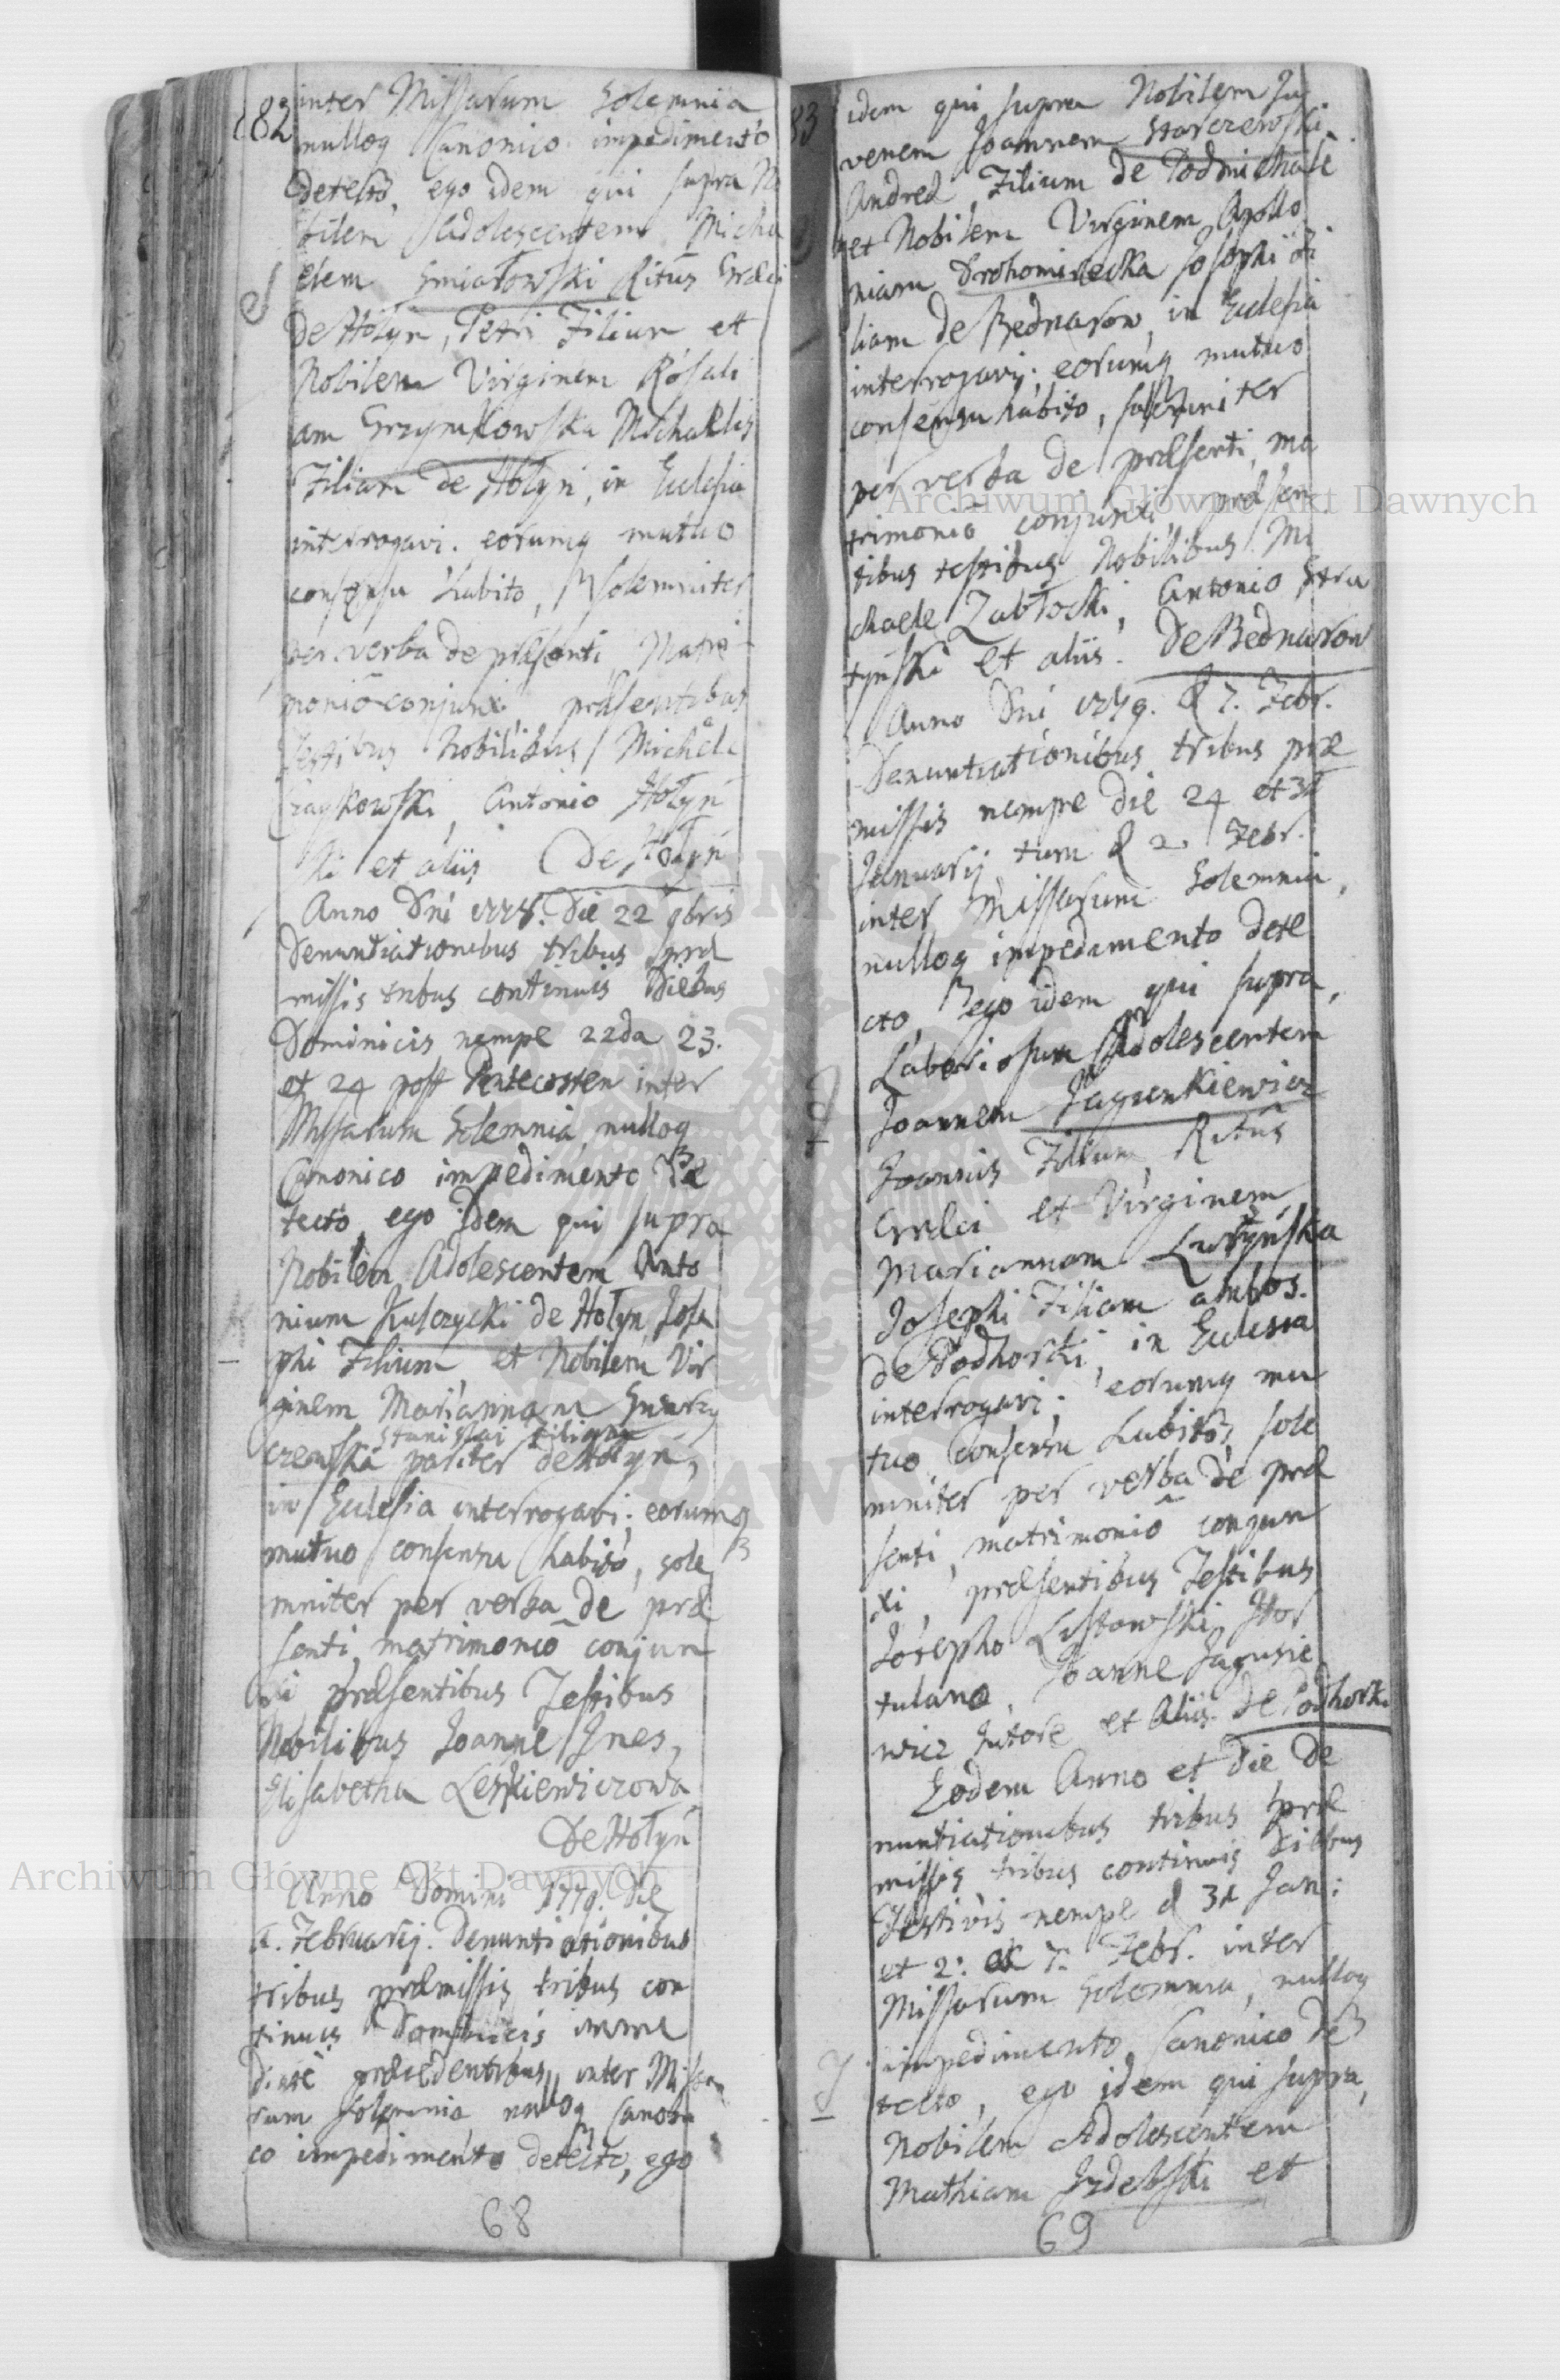 82
inter Missarum Solemnia
nulloq Canonico impedimento
detecto, ego idem qui supra No
bilem Adolescentem Micha
elem Smiatowski Ritûs Græci
de Hołyn, Petri Filium et
Nobilem Virginem Rosali
am Grzymkowska Michaelis
Filiam de Hołyń, in Eclesia
interrogavi. eorumq mutuo
consensu habito, solemniter
per verba de præsenti Matri
monio conjunxi præsentibus
Testibus Nobilibus Michaele
Czaykowski, Antonio Hołyń
ski et aliis De Hołyń
Anno Dni 1778. Die 22 9bris
Denuntiationibus tribus præ
missis tribus continuis Diebus
Dominicis nempe 22da 23.
et 24 post Pentecosten inter
Missarum Solemnia nulloq
Canonico impedimento de
tecto, ego idem qui supra
Nobilem Adolescentem Anto
nium Kulczycki de Hołyn Jose
phi Filium et Nobilem Vir
ginem Mariannam
Stanislai filiam
czewska pariter de Hołyń,
in Eclesia interrogavi; eorumq
mutuo consensu habito, sole
mniter per verba de præ
senti matrimonio conjun
xi præsentibus Testibus
Nobilibus Joanne Jnes,
Elisabetha Leśkiewiczowa
De Hołyń
Anno Domini 1779. Die
Februarij. Denuntiationibus
tribus præmissis tribus con
tinuis Dominicis imme
diatè præcedentibus inter Missa
rum Solemnia nulloq Canoni
co impedimento detecto, ego
68
83
idem qui supra Nobilem Ju
venem Joannem Starczewski
Andreæ Filium de Podmichale
et Nobilem Virginem Apollo
niam Drohomirecka Josephi Fi
liam de Bednarow, in Eclesia
interrogavi; eorumq mutuo
consensu habito, solemniter
per verba de præsenti, ma
trimonio conjunxi, præsen
tibus testibus Nobilibus Mi
chaele Zabłocki, Antonio Stru
tyński et aliis. De Bednarow
Anno Dni 1779. d 7. Febr.
Denuntiationibus tribus præ
missis nempe die 24 et 31
Januarij tum d 2. Febr.
inter Missarum Solemnia,
nulloq impedimento dete
cto, ego idem qui supra,
Laboriosum Adolescentem
Joannem Jagunkiewicz
Joannis Filium, Ritûs
Græci et Virginem
Mariannam Łużyńska
Josephi Filiam ambos.
de Podhorki, in Eclesia
interrogavi; eorumq mu
tuo consensu habito, sole
mniter per verba de præ
senti, matrimonio conjun
xi, præsentibus Testibus
Josepho Listowski Hor
tulano, Joanne Jagusie
wicz Tutore et Aliis. De Podhorki
Eodem Anno et Die De
nuntiationibus tribus præ
missis tribus continuis Diebus
Festivis nempe d 31 Jan:
et 2: et 7. Febr. inter
Missarum Solemnia, nulloq
impedimento Canonico de
tecto, ego idem qui supra,
Nobilem Adolescentem
Mathiam Jzdebski et
69
Archiwum Główne Akt Dawnych
Archiwum Główne Akt Dawnych